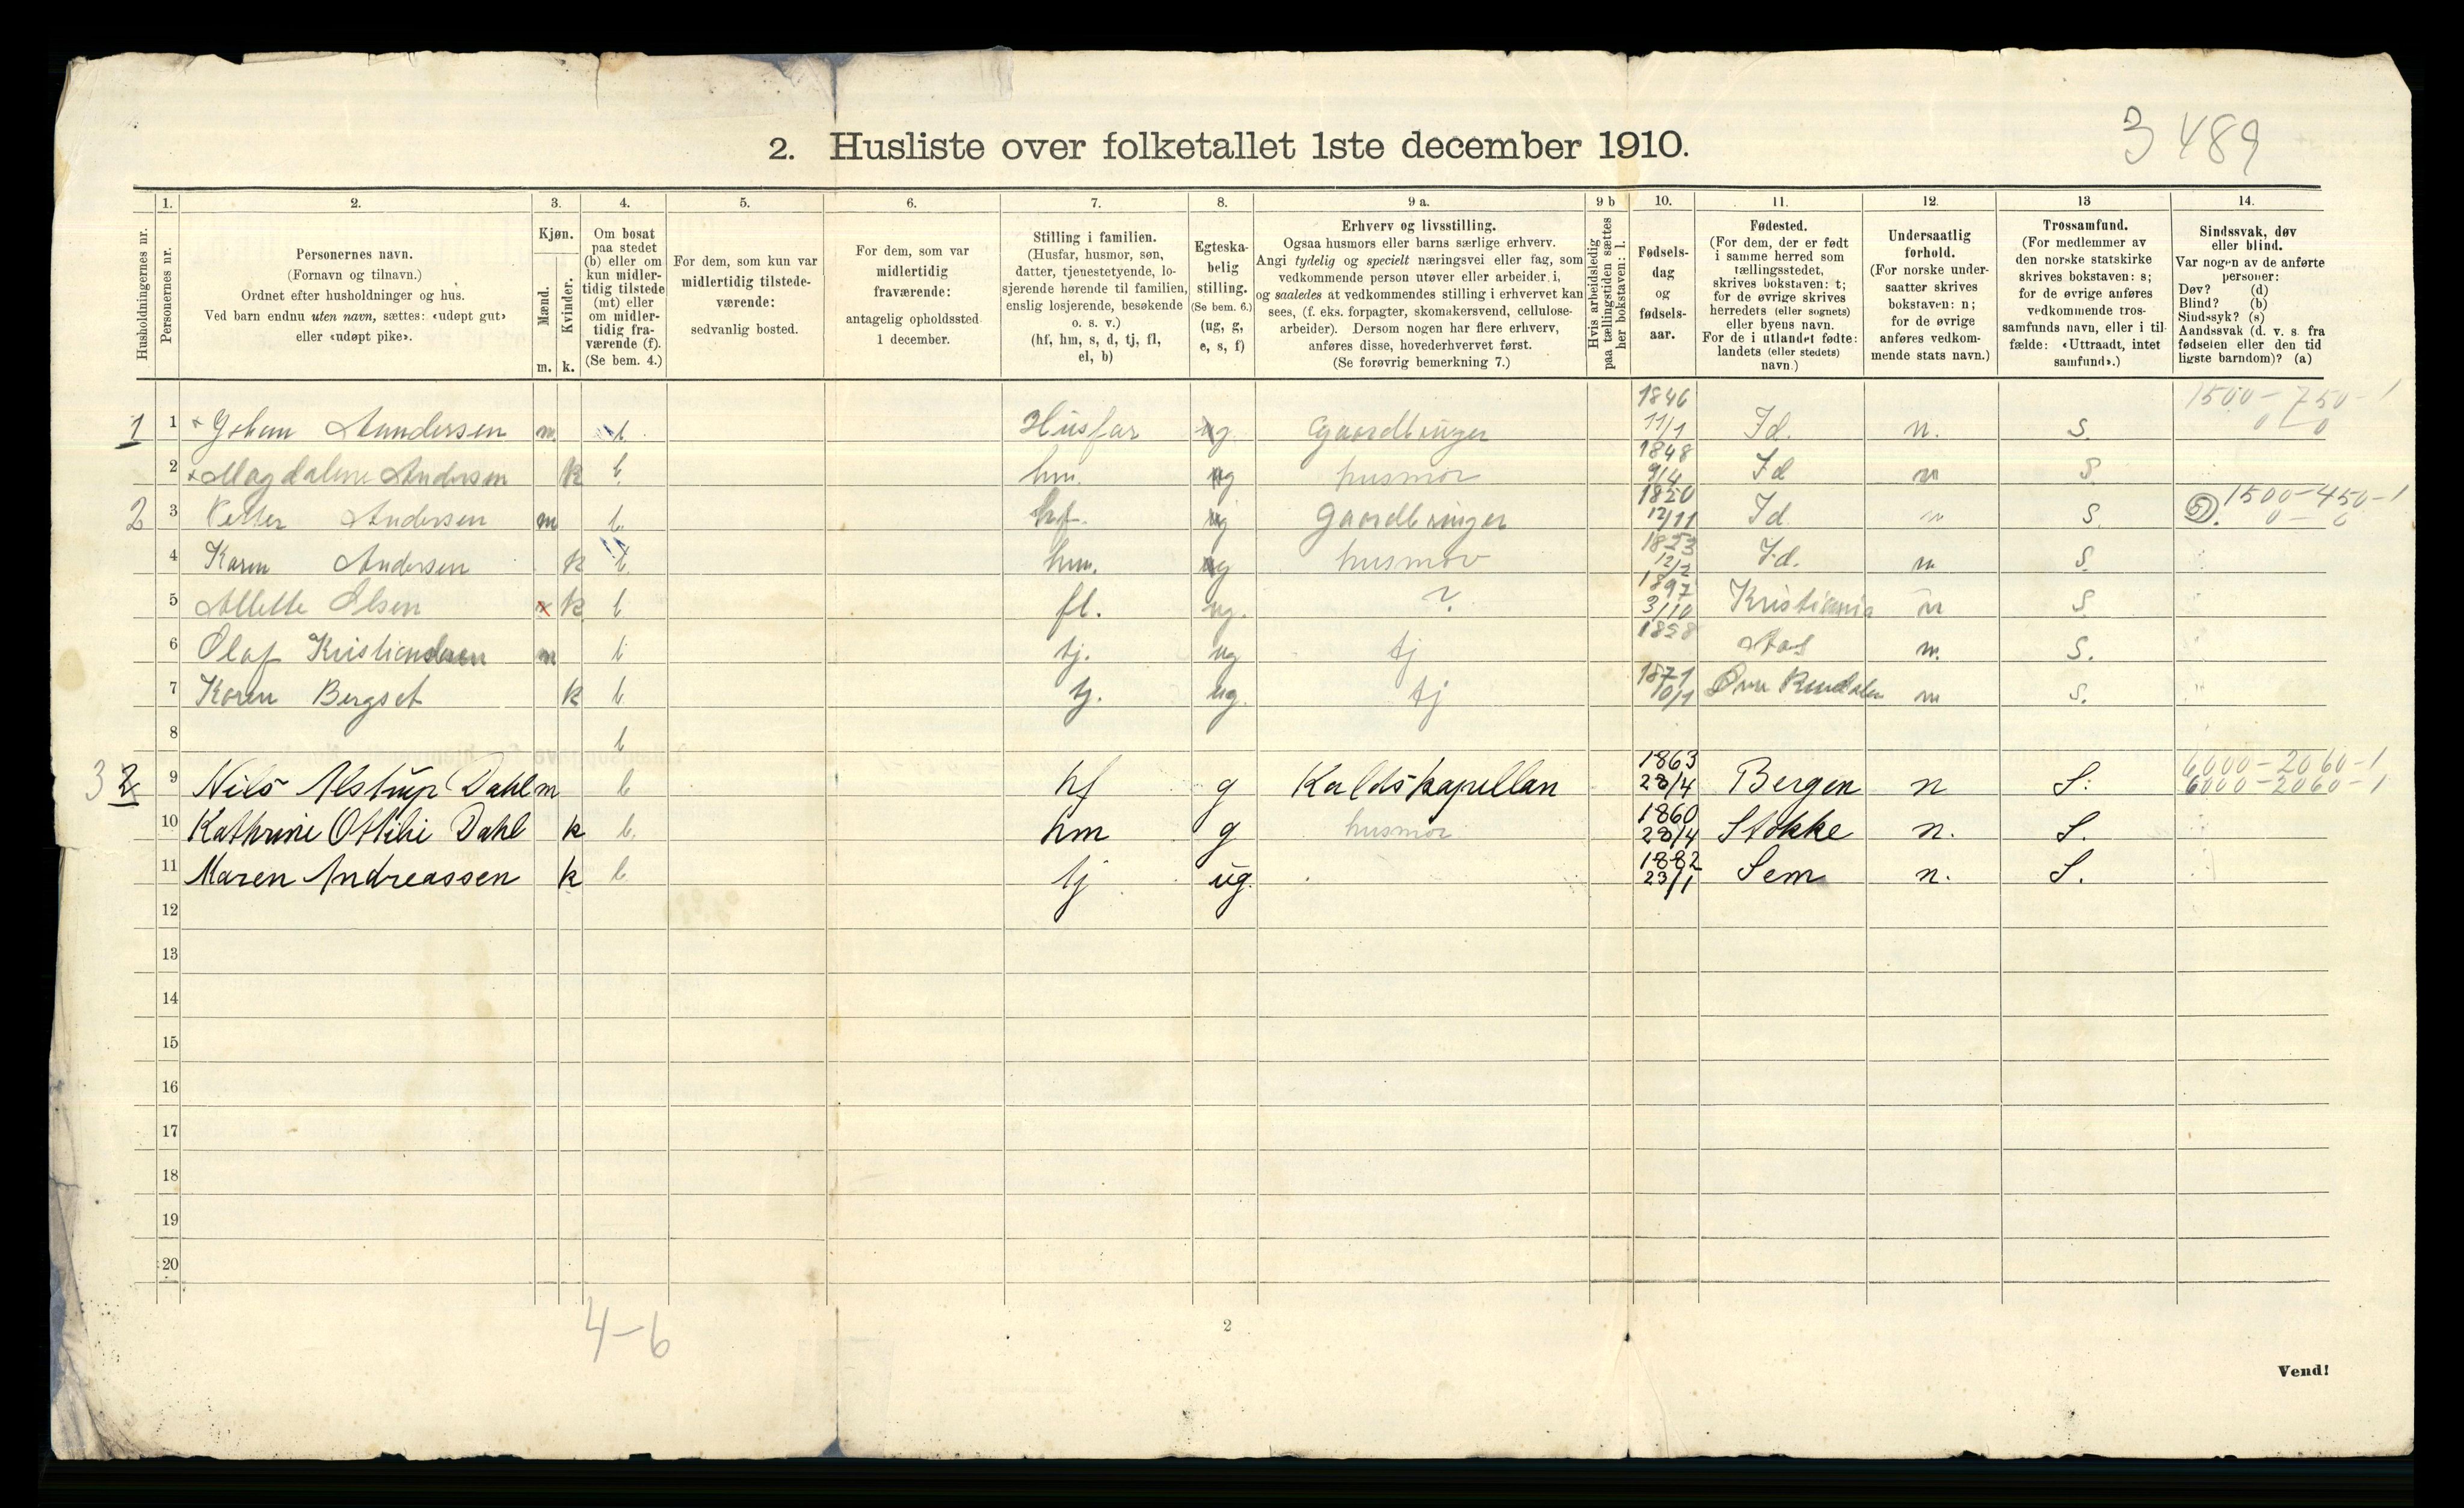 3 489
2. Husliste over folketallet 1ste december 1910.
Husholdningernes nr.
1.
Personernes nr.
2.
Personernes navn.
(Fornavn og tilnavn.)
Ordnet efter husholdninger og hus.
Ved barn endnu uten navn, sættes: «udøpt gut»
eller «udøpt pike».
3.
Kjøn.
Mænd.
m.
Kvinder.
k.
4.
Om bosat
paa stedet
(b) eller om
kun midler-
tidig tilstede
(mt) eller
om midler-
tidig fra-
værende (f).
(Se bem. 4.)
5.
For dem, som kun var
midlertidig tilstede-
værende:
sedvanlig bosted.
6.
For dem, som var
midlertidig
fraværende:
antagelig opholdssted
1 december.
7.
Stilling i familien.
(Husfar, husmor, søn,
datter, tjenestetyende, lo-
sjerende hørende til familien,
enslig losjerende, besøkende
o. s. v.)
(hf, hm, s, d, tj, fl,
el, b)
8.
Egteska-
belig
stilling.
(Se bem. 6.)
(ug, g,
e, s, f)
9 a.
Erhverv og livsstilling.
Ogsaa husmors eller barns særlige erhverv.
Angi tydelig og specielt næringsvei eller fag, som
vedkommende person utøver eller arbeider i,
og saaledes at vedkommendes stilling i erhvervet kan
sees, (f. eks. forpagter, skomakersvend, cellulose-
arbeider). Dersom nogen har flere erhverv,
anføres disse, hovederhvervet først.
(Se forøvrig bemerkning 7.)
9 b
Hvis arbeidsledig
paa tællingstiden sættes
her bokstaven: l.
10.
Fødsels-
dag
og
fødsels-
aar.
11.
Fødested.
(For dem, der er født
i samme herred som
tællingsstedet,
skrives bokstaven: t;
for de øvrige skrives
herredets (eller sognets)
eller byens navn.
For de i utlandet fødte:
landets (eller stedets)
navn.)
12.
Undersaatlig
forhold.
(For norske under-
saatter skrives
bokstaven: n;
for de øvrige
anføres vedkom-
mende stats navn.)
13
Trossamfund.
(For medlemmer av
den norske statskirke
skrives bokstaven: s;
for de øvrige anføres
vedkommende tros-
samfunds navn, eller i til-
fælde: «Uttraadt, intet
samfund».)
14.
Sindssvak, døv
eller blind.
Var nogen av de anførte
personer:
Døv? (d)
Blind? (b)
Sindssyk? (s)
Aandssvak (d. v. s. fra
fødselen eller den tid
ligste barndom)? (a)
1500 – 750 – 1
0 – 0
1 1 × Johan Anndersen m b Husfar g Gaardbruger 1846 11/1 Id. n. S.
2 × Magdalene Andersen k b hm. g husmor 1848 9/4 Id n S
2 3 Petter Andersen m b hf. g gaardbruger 1820 12/11 Id n S. 1500 – 450 – 1
4 Karen Andersen k b hm. g husmor 1823 12/2 Id. n S.
5 Allette Olsen × k b fl. ug. ? 1897 3/10 Kristiania n S
6 Olaf Kristiansen m b tj. ug tj 1858 n. S.
7 Karen Bergset k b tj. ug. tj 1871 10/1 Øvre Rendalen n S.
8 b
3 2 9 Nils Alstrup Dahl m b hf g Kaldskapellan 1863 28/4 Bergen n S. 6000 – 2060 – 1
6000 – 2060 – 1
10 Kathrine Ottilie Dahl k b. hm g husmor 1860 28/4 Stokke n. S.
11 Maren Andreassen k b tj ug. 1882 23/1 Sem n. S.
12
13
14
15
16
17
18
19
20
4-6
2
Vend!